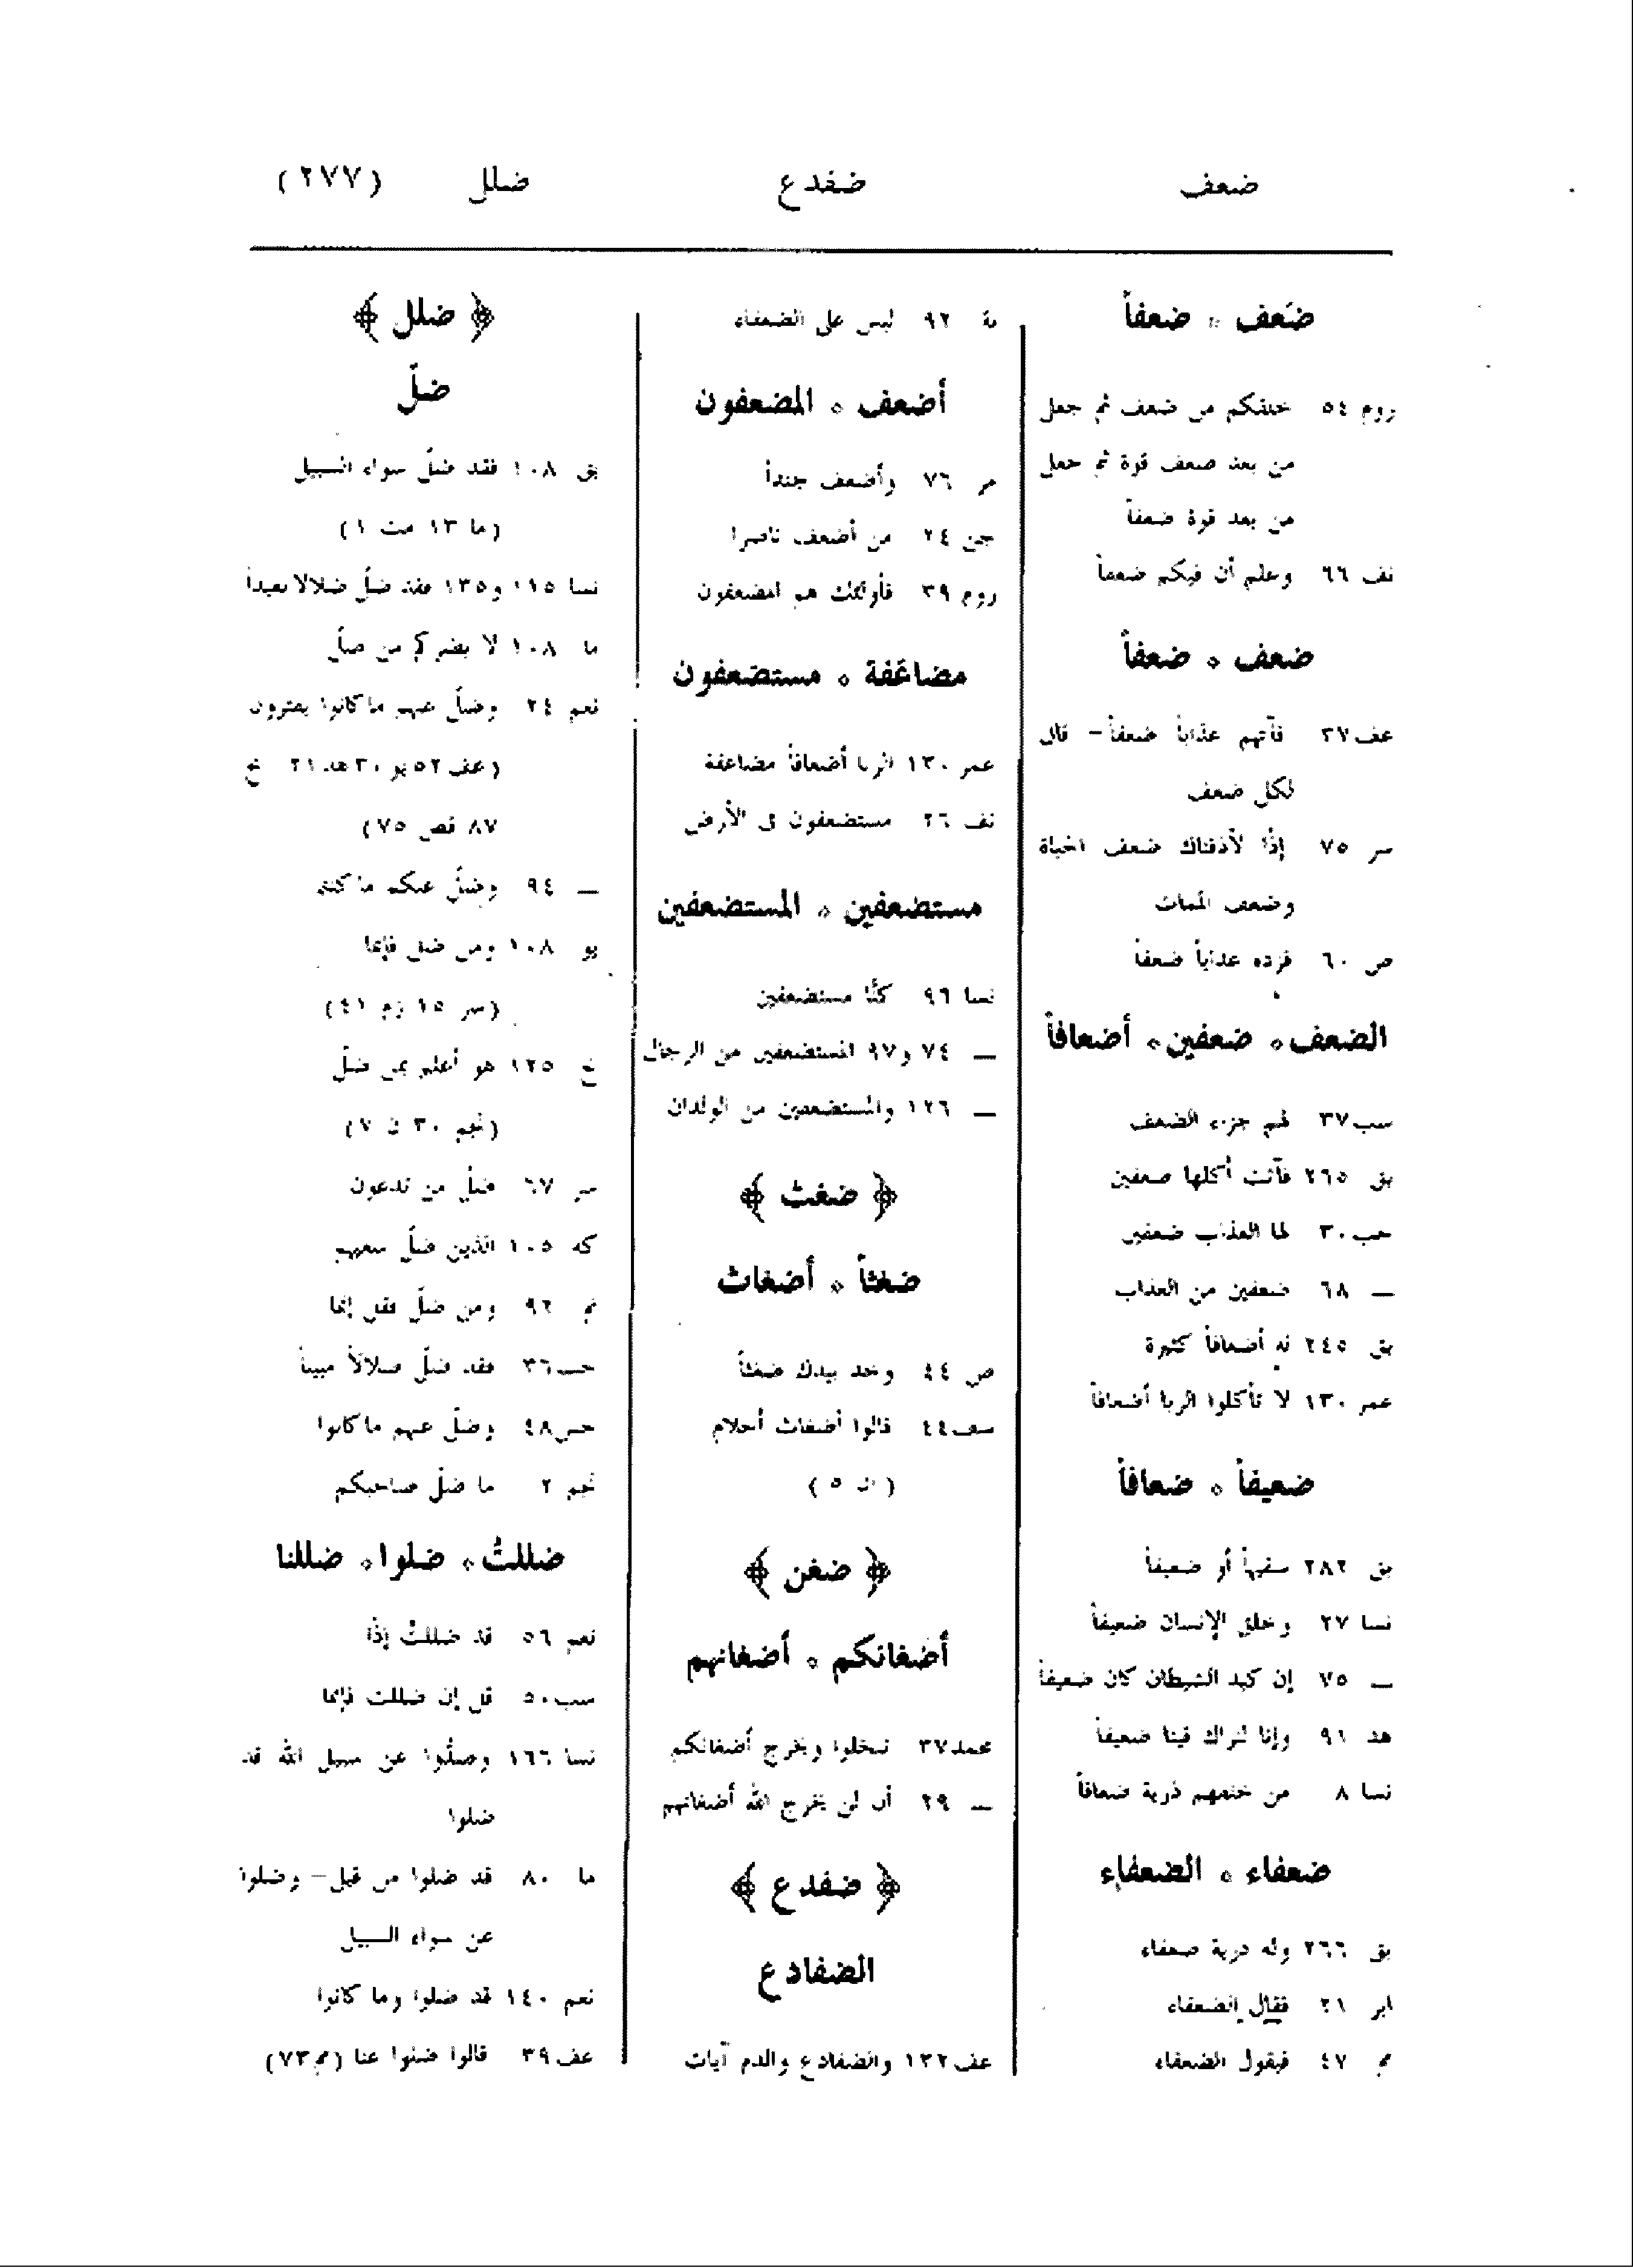 ضعف ضفدع ضلل (٢٧٧)
ضَعف ۞ ضعفاً
روم ٥٤ خلقكم من ضعف ثم جعل
من بعد ضعف قوة ثم جعل
من بعد قوة ضعفاً
نف ٦٦ وعلم أن فيكم ضعفاً
ضعف ۞ ضعفاً
عف ٣٧ فآتهم عذاباً ضعفاً – قال
لكل ضعف
سر ٧٥ إذًا لأذقناك ضعف الحياة
وضعف الممات
ص ٦٠ فزده عذاباً ضعفاً
الضعف ۞ ضعفين ۞ أضعافاً
سب ٣٧ لهم جزاء الضعف
بق ٢٦٥ فآتت أكلها ضعفين
حب ٣٠ لها العذاب ضعفين
— ٦٨ ضعفين من العذاب
بق ٢٤٥ له أضعافاً كثيرة
عمر ١٣٠ لا تأكلوا الربا أضعافاً
ضعيفاً ۞ ضعافاً
بق ٢٨٢ سفيهاً أو ضعيفاً
نسا ٢٧ وخلق الإنسان ضعيفاً
— ٧٥ إن كيد الشيطان كان ضعيفاً
هد ٩١ وإنا لنراك فينا ضعيفاً
نسا ٨ من خلفهم ذرية ضعافاً
ضعفاء ۞ الضعفاء
بق ٢٦٦ وله ذرية ضعفاء
ابر ٢١ فقال الضعفاء
مم ٤٧ فيقول الضعفاء
بة ٩٢ ليس على الضعفاء
أضعف ۞ المضعفون
مر ٧٦ وأضعف جنداً
جن ٢٤ من أضعف ناصرا
روم ٣٩ فأولئك هم المضعفون
مضاعَفة ۞ مستضعفون
عمر ١٣٠ الربا أضعافاً مضاعفة
نف ٢٦ مستضعفون فى الأرض
مستضعفين ۞ المستضعفين
نسا ٩٦ كنَّا مستضعفين
— ٧٤ و٩٧ المستضعفين من الرجال
— ١٢٦ والمستضعفين من الولدان
﴿ ضغث ﴾
ضغثاً ۞ أضغاث
ص ٤٤ وخذ بيدك ضغثاً
سف ٤٤ قالوا أضغاث أحلام
( ان ٥ )
﴿ ضغن ﴾
أضغانكم ۞ أضغانهم
محمد ٣٧ تبخلوا ويخرج أضغانكم
— ٢٩ أن لن يخرج الله أضغانهم
﴿ ضفدع ﴾
الضفادع
عف ١٣٢ والضفادع والدم آيات
﴿ ضلل ﴾
ضلّ
بق ١٠٨ فقد ضلّ سواء السبيل
(ما ١٣ مت ١)
نسا ١١٥ و١٣٥ فقد ضلّ ضلالا بعيداً
ما ١٠٨ لا يضركم من ضلّ
نعم ٢٤ وضلّ عنهم ما كانوا يفترون
(عف ٥٢ يو ٣٠ هد ٢١ نح
٨٧ قص ٧٥)
— ٩٤ وضلّ عنكم ما كنتم
يو ١٠٨ ومن ضل فإنما
(سر ١٥ زم ٤١)
نح ١٢٥ هو أعلم بمن ضلّ
(نجم ٣٠ ن ٧)
سر ٦٧ ضلّ من تدعون
كه ١٠٥ الذين ضلّ سعيهم
نم ٩٢ ومن ضلّ فقل إنما
حب ٣٦ فقد ضلّ ضلالاً مبيناً
حس ٤٨ وضلّ عنهم ما كانوا
نجم ٢ ما ضلّ صاحبكم
ضللتُ ۞ ضلوا ۞ ضللنا
نعم ٥٦ قد ضللتُ إذًا
سب ٥٠ قل إن ضللت فإنما
نسا ١٦٦ وصدُّوا عن سبيل الله قد
ضلوا
ما ٨٠ قد ضلوا من قبل – وضلوا
عن سواء السبيل
نعم ١٤٠ قد ضلوا وما كانوا
عف ٣٩ قالوا ضلوا عنا (مم ٧٣)